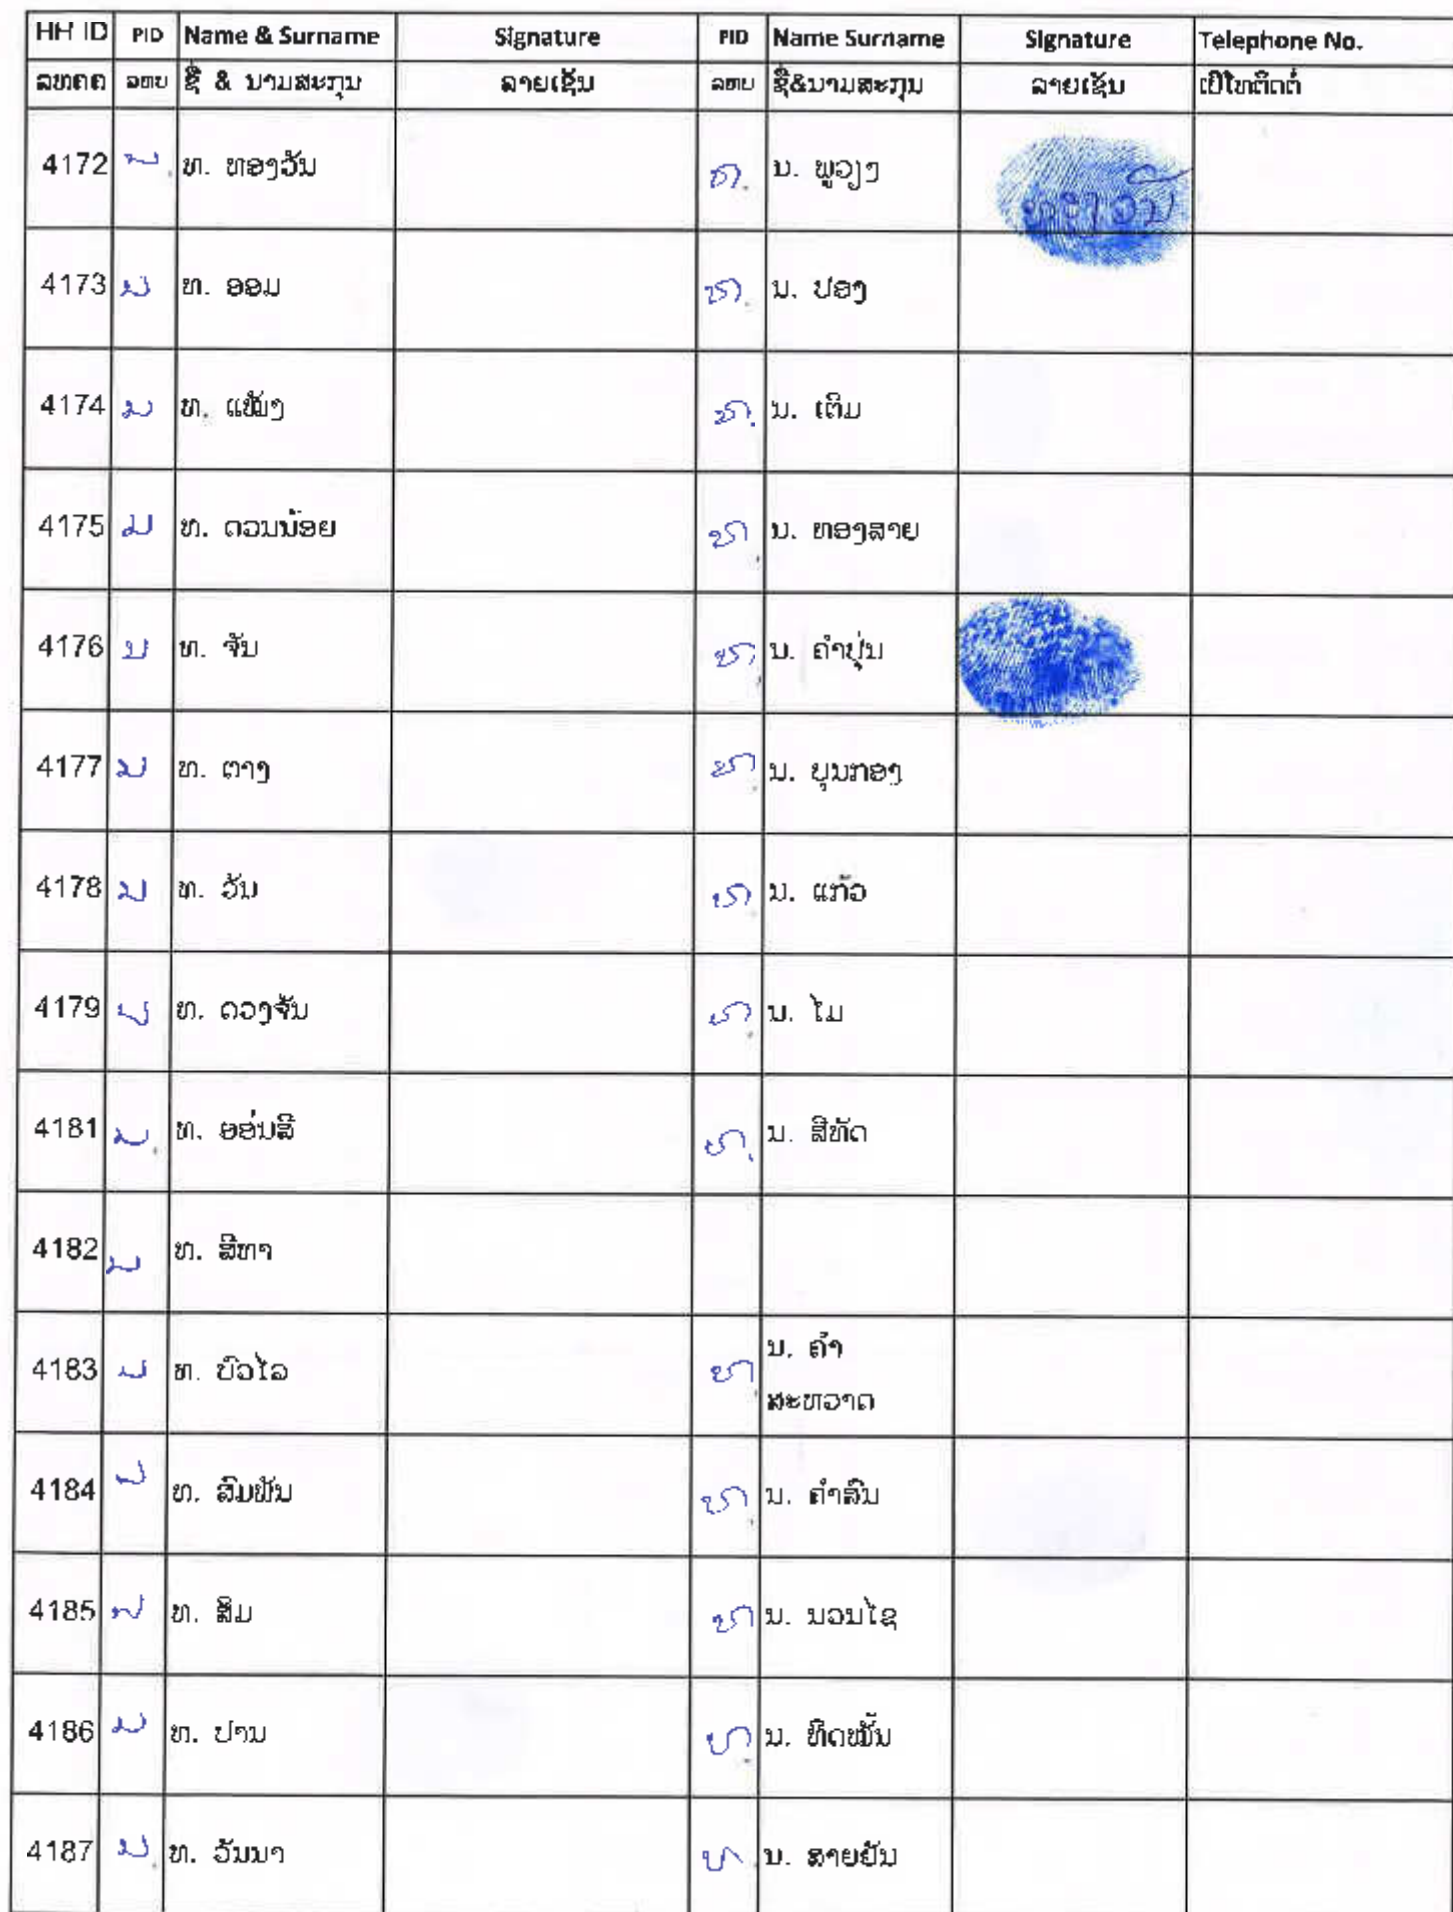 HH ID PID Name & Surname Signature PID Name Surname Signature Telephone No.
ລຫຄຄ ລຫບ ຊື່ & ນາມສະກຸນ ລາຍເຊັນ ລຫບ ຊື່&ນາມສະກຸນ ລາຍເຊັນ ເບີໂທຕິດຕໍ່
4172 ທ. ທອງວັນ ນ. ພູວຽງ ທອງວັນ
4173 ທ. ອອມ ນ. ປອງ
4174 ທ. ນ. ເຕີມ
4175 ທ. ດວນນ້ອຍ ນ. ທອງສາຍ
4176 ທ. ຈັນ ນ. ຄຳປຸ່ນ
4177 ທ. ຕາງ ນ. ບຸນກອງ
4178 ທ. ວັນ ນ. ແກ້ວ
4179 ທ. ດວງຈັນ ນ. ໄມ
4181 ທ. ອອ່ນສີ ນ. ສີທັດ
4182 ທ. ສີທາ
4183 ທ. ບົວໄລ ນ. ຄຳ
ສະຫວາດ
4184 ທ. ສົມພັນ ນ. ຄຳສົນ
4185 ທ. ສິມ ນ. ນວນໄຊ
4186 ທ. ປານ ນ. ທິດໝັ້ນ
4187 ທ. ວັນນາ ນ. ສາຍຢັນ